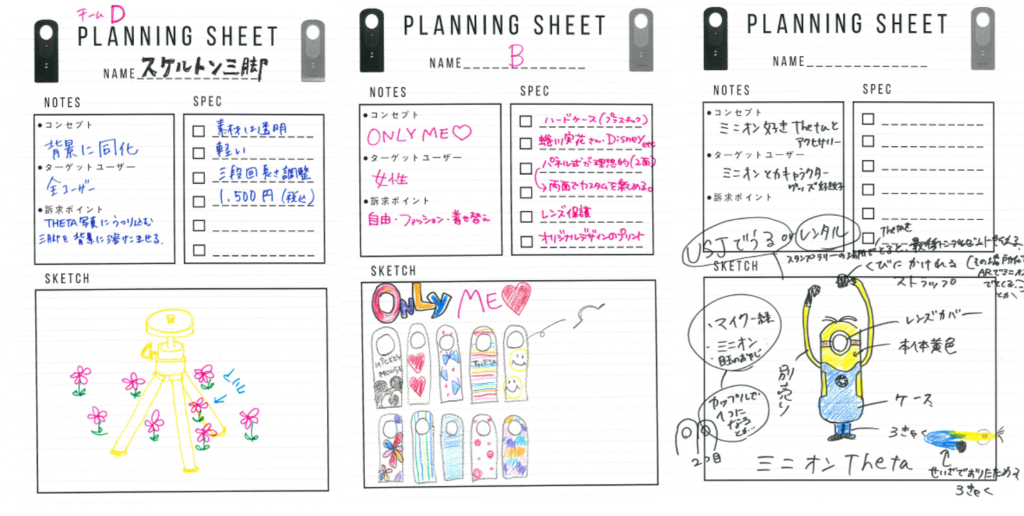 チームD
PLANNING SHEET
NAME スケルトン三脚
NOTES
●コンセプト
背景に同化
●ターゲットユーザー
全ユーザー
●訴求ポイント
THETA写真にうつり込む
三脚を背景に溶けこませる。
SPEC
素材は透明
軽い
三段回長さ調整
1,500円(税込)
SKETCH
PLANNING SHEET
NAME B
NOTES
●コンセプト
ONLY ME♡
●ターゲットユーザー
女性
●訴求ポイント
自由・ファッション・着せ替え
SPEC
ハードケース(プラスチック)
蜷川実花さん・Disney etc
パネル式が理想的(2面)
→両面でカスタムを楽しめる。
レンズ保護
オリジナルデザインのプリント
SKETCH
ONLY ME♥
MICKEY
MOUSE
THETA
PLANNING SHEET
NAME
NOTES
●コンセプト
ミニオン好きThetaと
アクセサリー
●ターゲットユーザー
ミニオンとかキャラクター
グッズ好き女子
●訴求ポイント
USJでうるorレンタル
SPEC
Thetaを
スタンプラリーの場所でとると
SKETCH
くびにかけれる
ストラップ
(その場所で
ARでミニオン
でてくる
とか
・マイク一緒
・ミニオン
レンズカバー
本体黄色
別売り
ケース
カップルで
1つに
なる
とか…
2コ目
3きゃく
ミニオンTheta
せいざでおりたためる
3きゃく